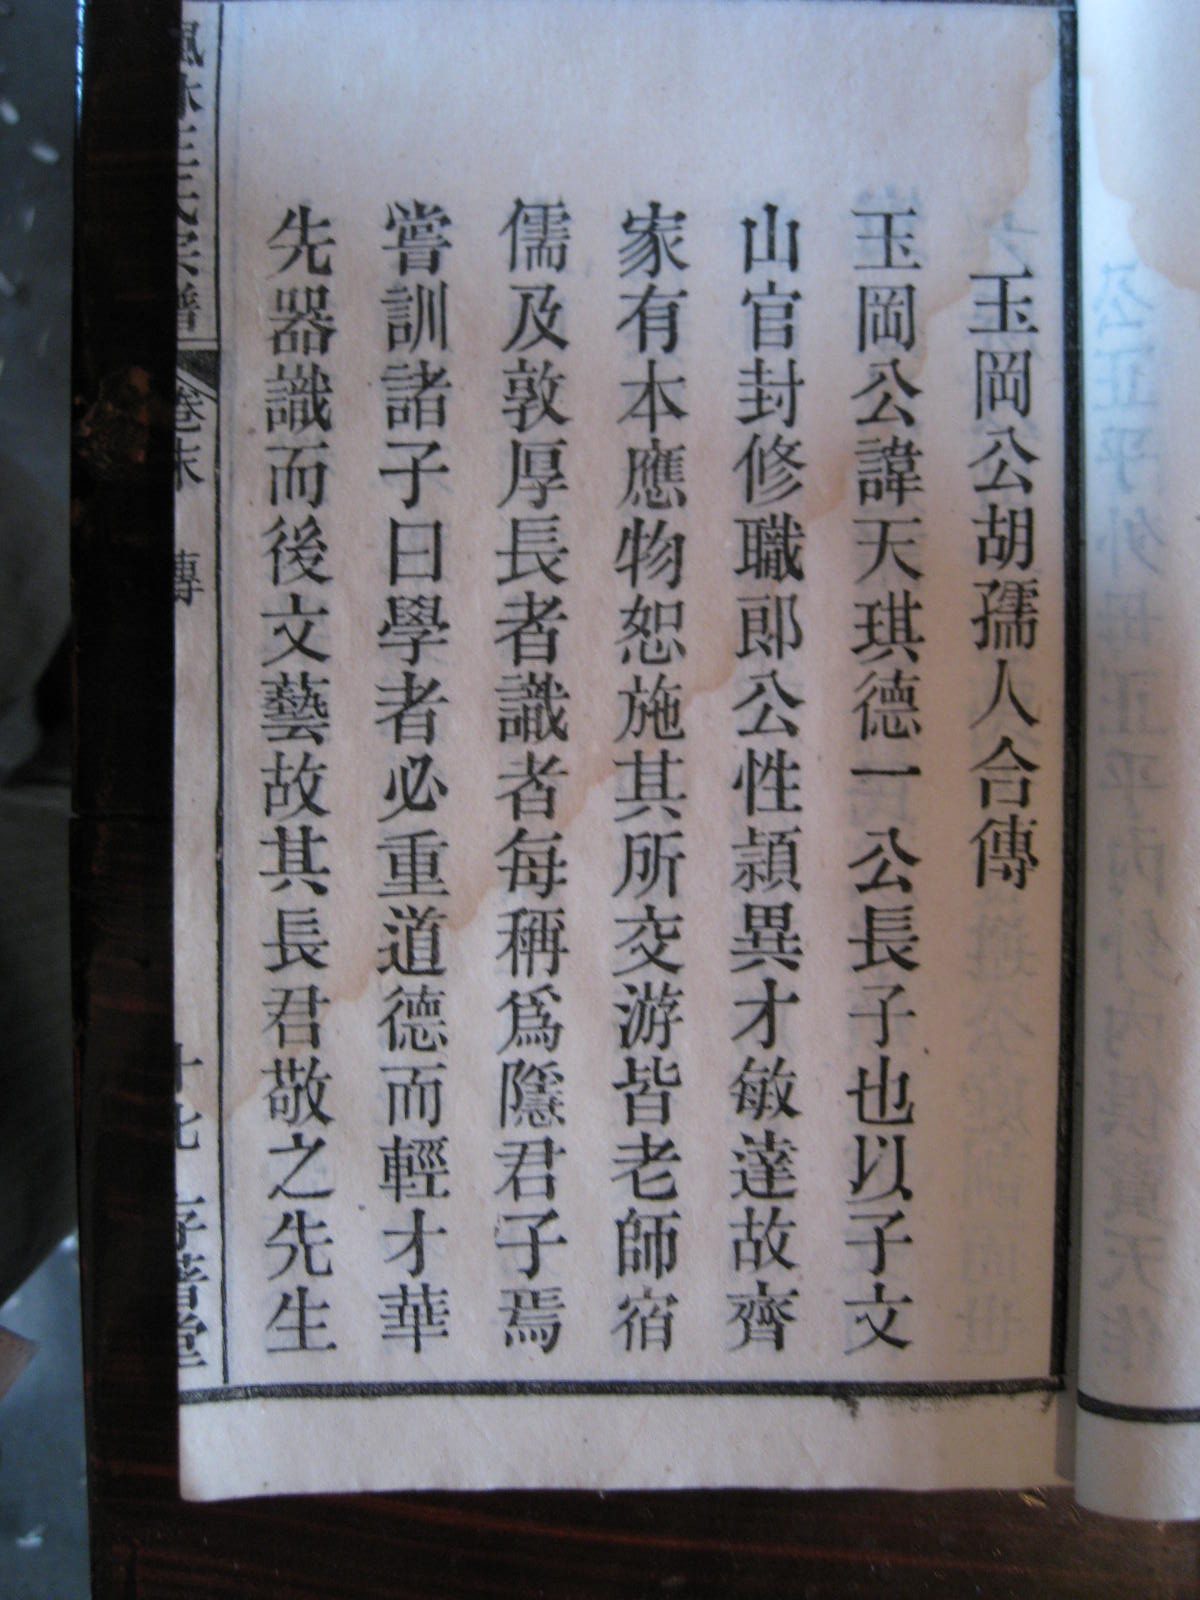 玉岡公胡孺人合傳
玉岡公諱天琪德一公長子也以子文
山官封修職郎公性穎異才敏達故齊
家有本應物恕施其所交游皆老師宿
儒及敦厚長者識者每稱爲隱君子焉
嘗訓諸子曰學者必重道德而輕才華
先器識而後文藝故其長君敬之先生
王氏宗譜 卷末 傳